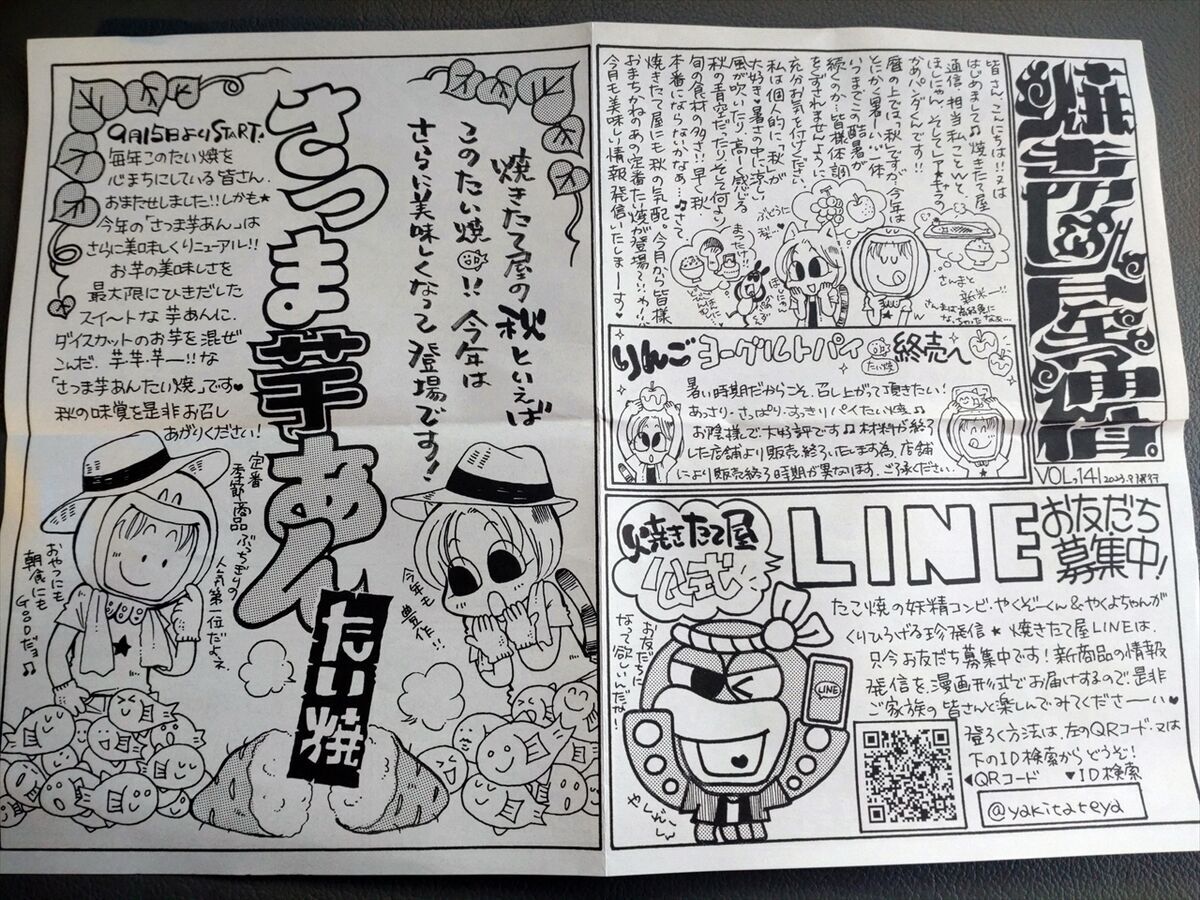 焼きたて屋通信。
VOL,141 2023.9月発行
皆さん、こんにちは!!又は
はじめまして♫焼きたて屋
通信、担当私ことWと、
ほしにゃん、そしてレアキャラの
かあパンダくんです!!
暦の上では「秋」ですが、今年は
とにかく暑いー!!一体
いつまでこの酷暑が
続くのか…皆様体調
をくずされませんように
充分お気を付けください
私は個人的に、「秋」が
大好き♥暑さの中に涼しい
風が吹いたり、高ーく感じる
秋の青空だったりそして何より
旬の食材の多さ!!早く秋
本番にならないかなぁ…♫さて、
焼きたて屋にも秋の気配。今月から皆様
おまちかねのあの定番たい焼が登場…!!
今月も美味しい情報発信いたしまーす♥
ぶどうに
梨
まつたけ!!
さんまと
新米ー!!
りんごヨーグルトパイ たい焼 終売へ
暑い時期だからこそ、召し上がって頂きたい!
あっさり・さっぱり・すっきりパイたい焼♫
お陰様で大好評です♫材料が終了
した店舗より販売終了いたします為、店舗
により販売終了時期が異なります、ご了承ください。
焼きたて屋
公式
LINE お友だち
募集中!
たこ焼の妖精コンビ・やくぞーくん&やくよちゃんが
くりひろげる珍発信★焼きたて屋LINEは、
只今お友だち募集中です!新商品の情報
発信を漫画形式でお届けするので是非
ご家族の皆さんと楽しんでみてくださーーい♥
登ろく方法は、左のQRコード・又は
下のID検索からどうぞ!
◀QRコード ▼ID検索
@yakitateya
お友だちに
なって欲しいんだなー!
LINE
焼きたて屋の秋といえば
このたい焼!!今年は
さらに美味しくなって登場です!
さつま芋あん
たい焼
9月15日よりSTART!
毎年このたい焼を
心まちにしている皆さん、
おまたせしました!!しかも★
今年の「さつま芋あん」は
さらに美味しくリニューアル!!
お芋の美味しさを
最大限にひきだした
スイートな芋あんに、
ダイスカットのお芋を混ぜ
こんだ、芋・芋・芋ー!!な
「さつま芋あんたい焼」です♥
秋の味覚を是非お召し
あがりください!
定番
季節商品ぶっちぎりの
人気第一位だよぇ
おやつにも
朝食にも
GOODだョ♫
今年も
豊作!!